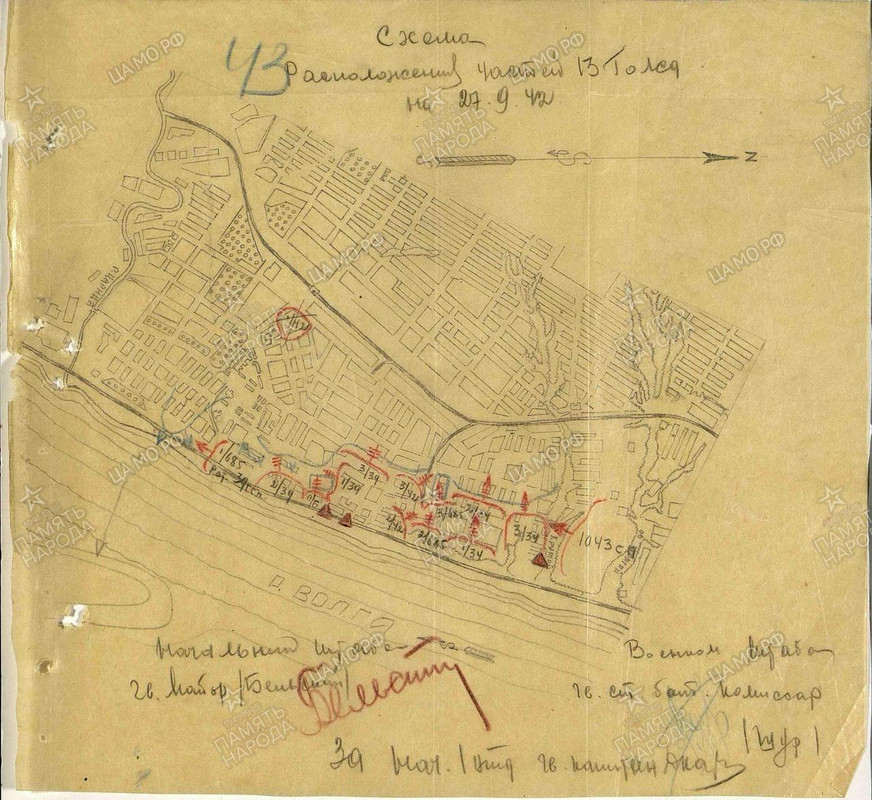 43
Схема
Расположения частей 13 Гвсд
на 27.9.42
N
1/42
1/685
2/39
1/39
3/39
3/42
3/685
2/34
3/34
2/42
2/685
1/34
1043 с
Р. ВОЛГА
Начальник штаба
гв. майор /Бельский/
Военком штаба
гв. ст. бат. комиссар
За Нач. 1 отд гв. капитан
ЦАМО.РФ
ПАМЯТЬ НАРОДА